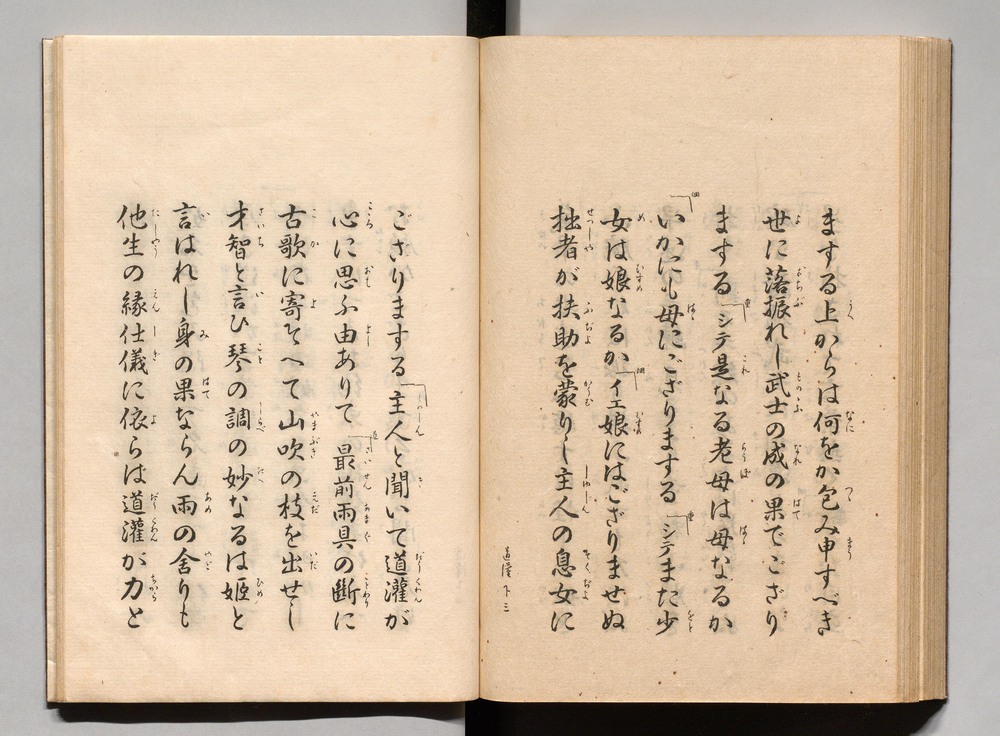 まする上からは何をか包み申すべき
世に落振れし武士の成の果でござり
まする シテ是なる老母は母なるか
いかにも母にござりまする シテまた少
女は娘なるか イエ娘にはござりませぬ
拙者が扶助を蒙りし主人の息女に
道灌 下 三
ござりまする 主人と聞いて道灌が
心に思ふ由ありて 最前雨具の斷に
古歌に寄そへて山吹の枝を出せし
才智と言ひ琴の調の妙なるは姫と
言はれし身の果ならん雨の舍りも
他生の縁仕儀に依らは道灌が力と